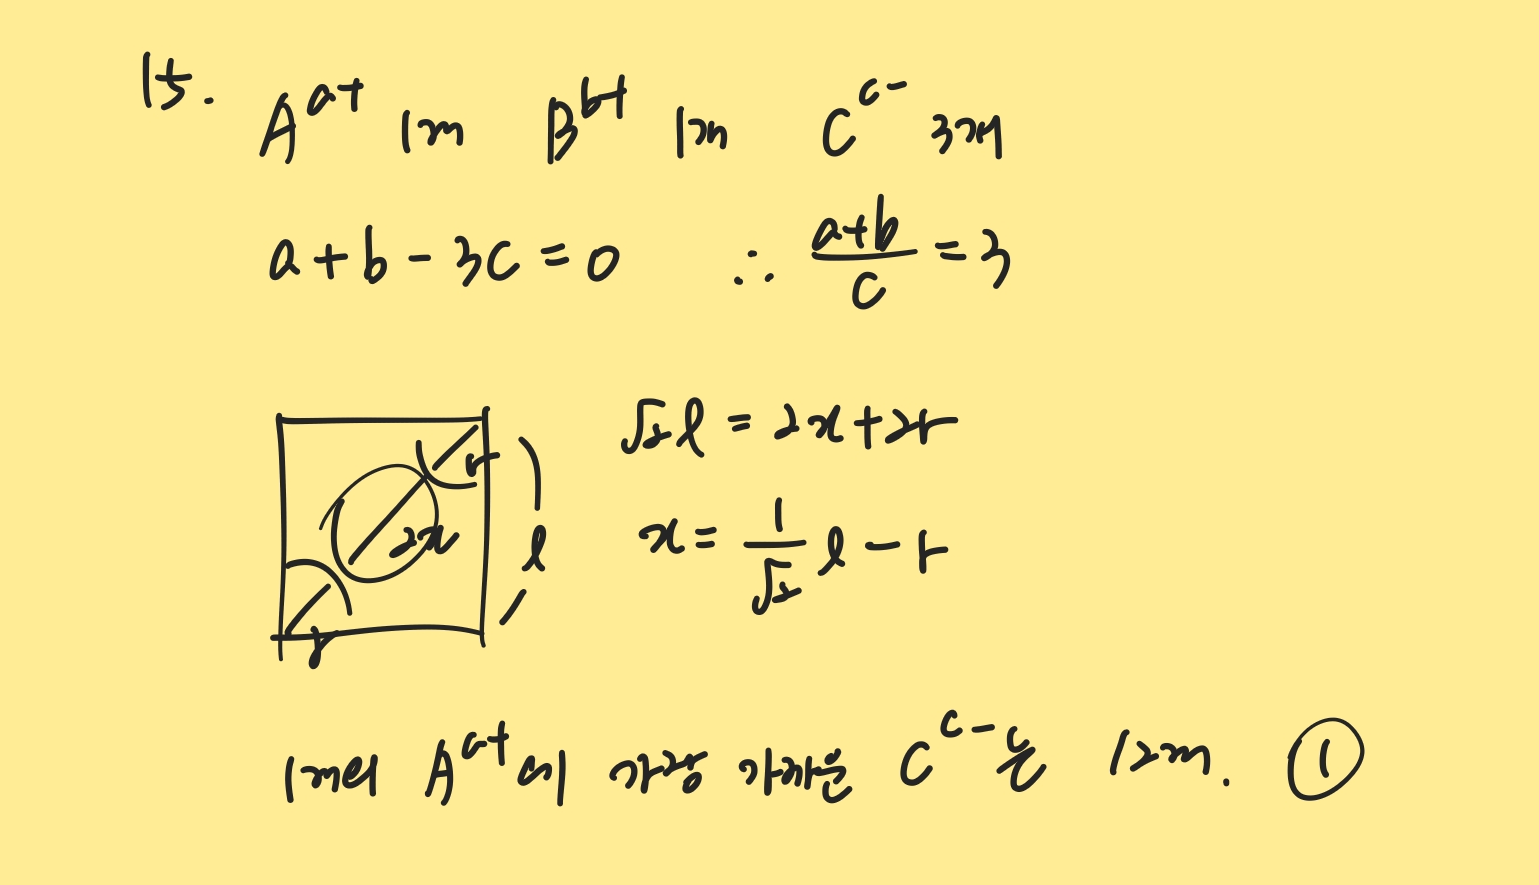 15.
A^{a+} 1개 B^{b+} 1개 C^{c-} 3개
a+b-3c=0 ∴ \frac{a+b}{c}=3
√2 l = 2x+2r
r
2x
l
x = \frac{1}{√2} l - r
r
1개의 A^{a+}에 가장 가까운 C^{c-}는 12개. ①